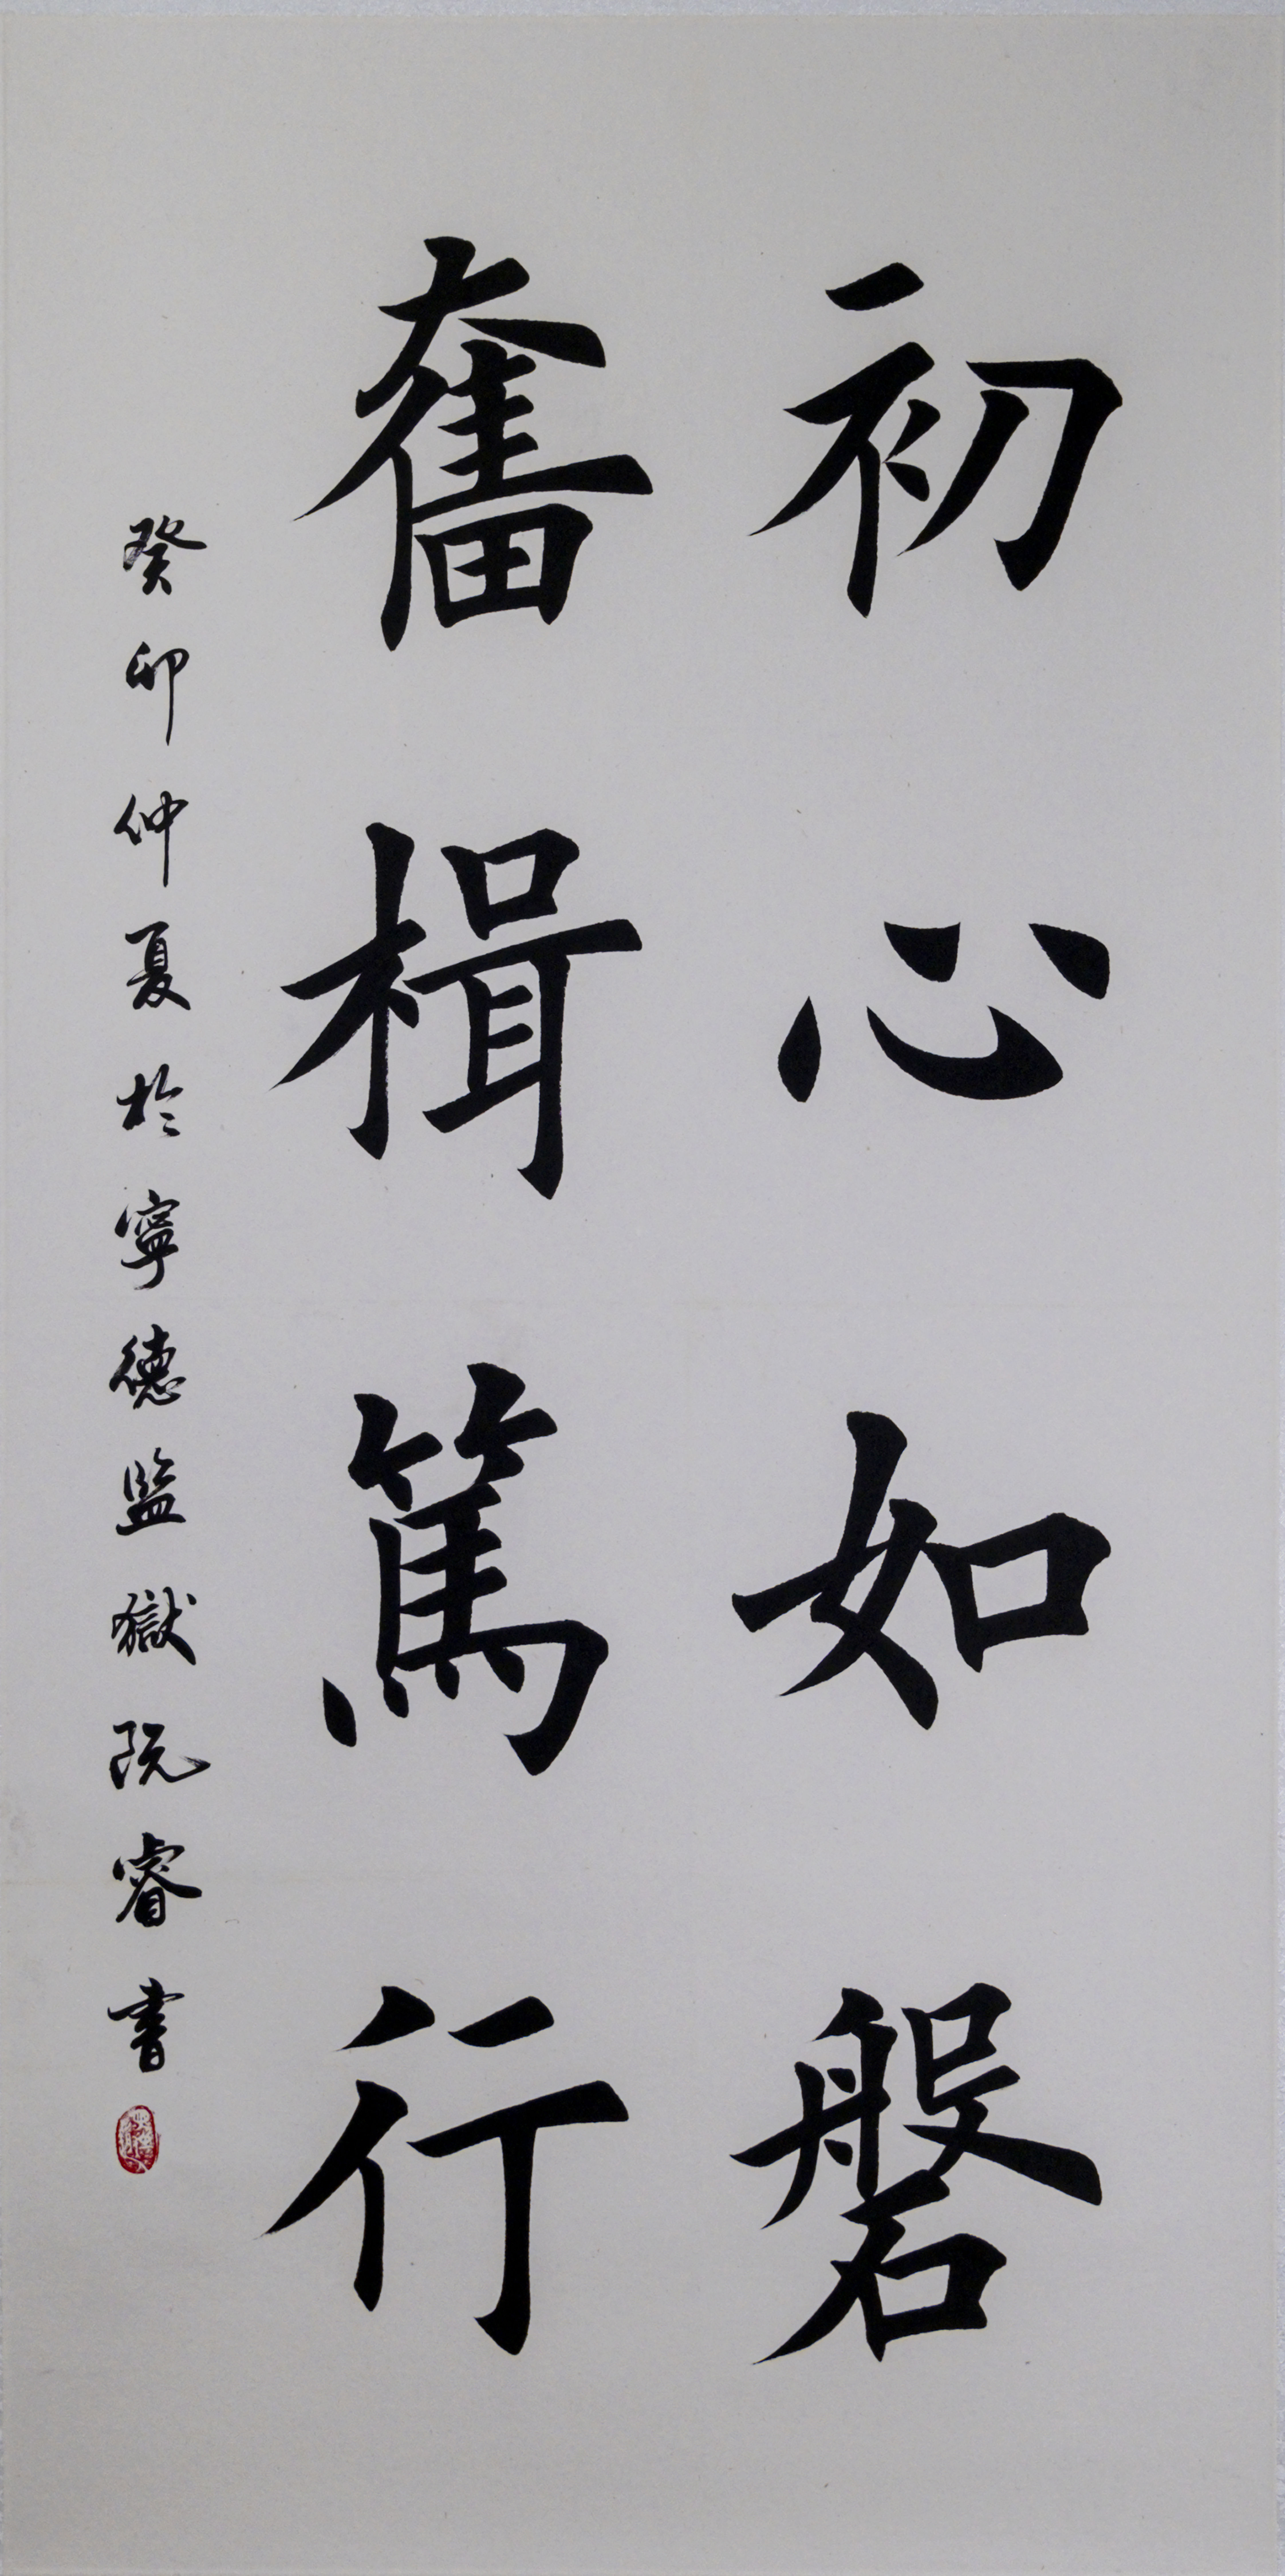 初心如磐
奮楫篤行
癸卯仲夏於寧德監獄阮睿書